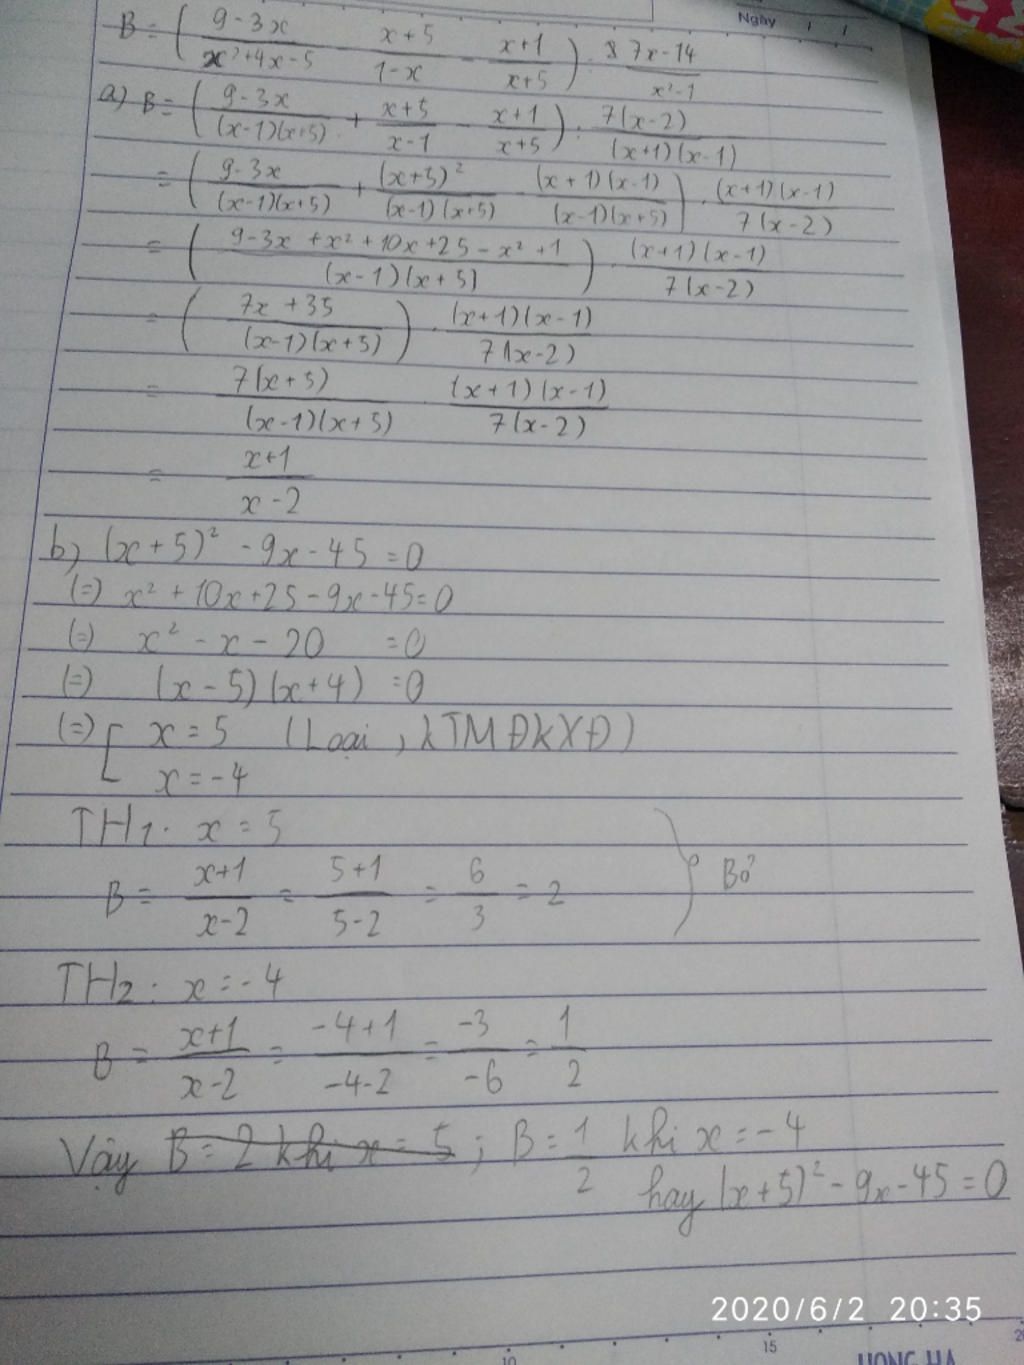 Ngày / /
B = ( (9-3x)/(x²+4x-5) - (x+5)/(1-x) - (x+1)/(x+5) ) : (7x-14)/(x²-1)
a) B = ( (9-3x)/((x-1)(x+5)) + (x+5)/(x-1) - (x+1)/(x+5) ) : 7(x-2)/((x+1)(x-1))
= ( (9-3x)/((x-1)(x+5)) + (x+5)²/((x-1)(x+5)) - (x+1)(x-1)/((x-1)(x+5)) ) . (x+1)(x-1)/(7(x-2))
= ( (9-3x+x²+10x+25-x²+1)/((x-1)(x+5)) ) . (x+1)(x-1)/(7(x-2))
= ( (7x+35)/((x-1)(x+5)) ) . (x+1)(x-1)/(7(x-2))
= 7(x+5)/((x-1)(x+5)) . (x+1)(x-1)/(7(x-2))
= (x+1)/(x-2)
b) (x+5)² - 9x - 45 = 0
(=) x² + 10x + 25 - 9x - 45 = 0
(=) x² - x - 20 = 0
(=) (x-5)(x+4) = 0
(=) [ x = 5 (Loại, kTMĐKXĐ)
x = -4
TH1. x = 5
B = (x+1)/(x-2) = (5+1)/(5-2) = 6/3 = 2 } Bỏ
TH2. x = -4
B = (x+1)/(x-2) = (-4+1)/(-4-2) = -3/-6 = 1/2
Vậy B = 2 khi x = 5 ; B = 1/2 khi x = -4
hay (x+5)² - 9x - 45 = 0
2020/6/2 20:35
10 15 20
HONG HA